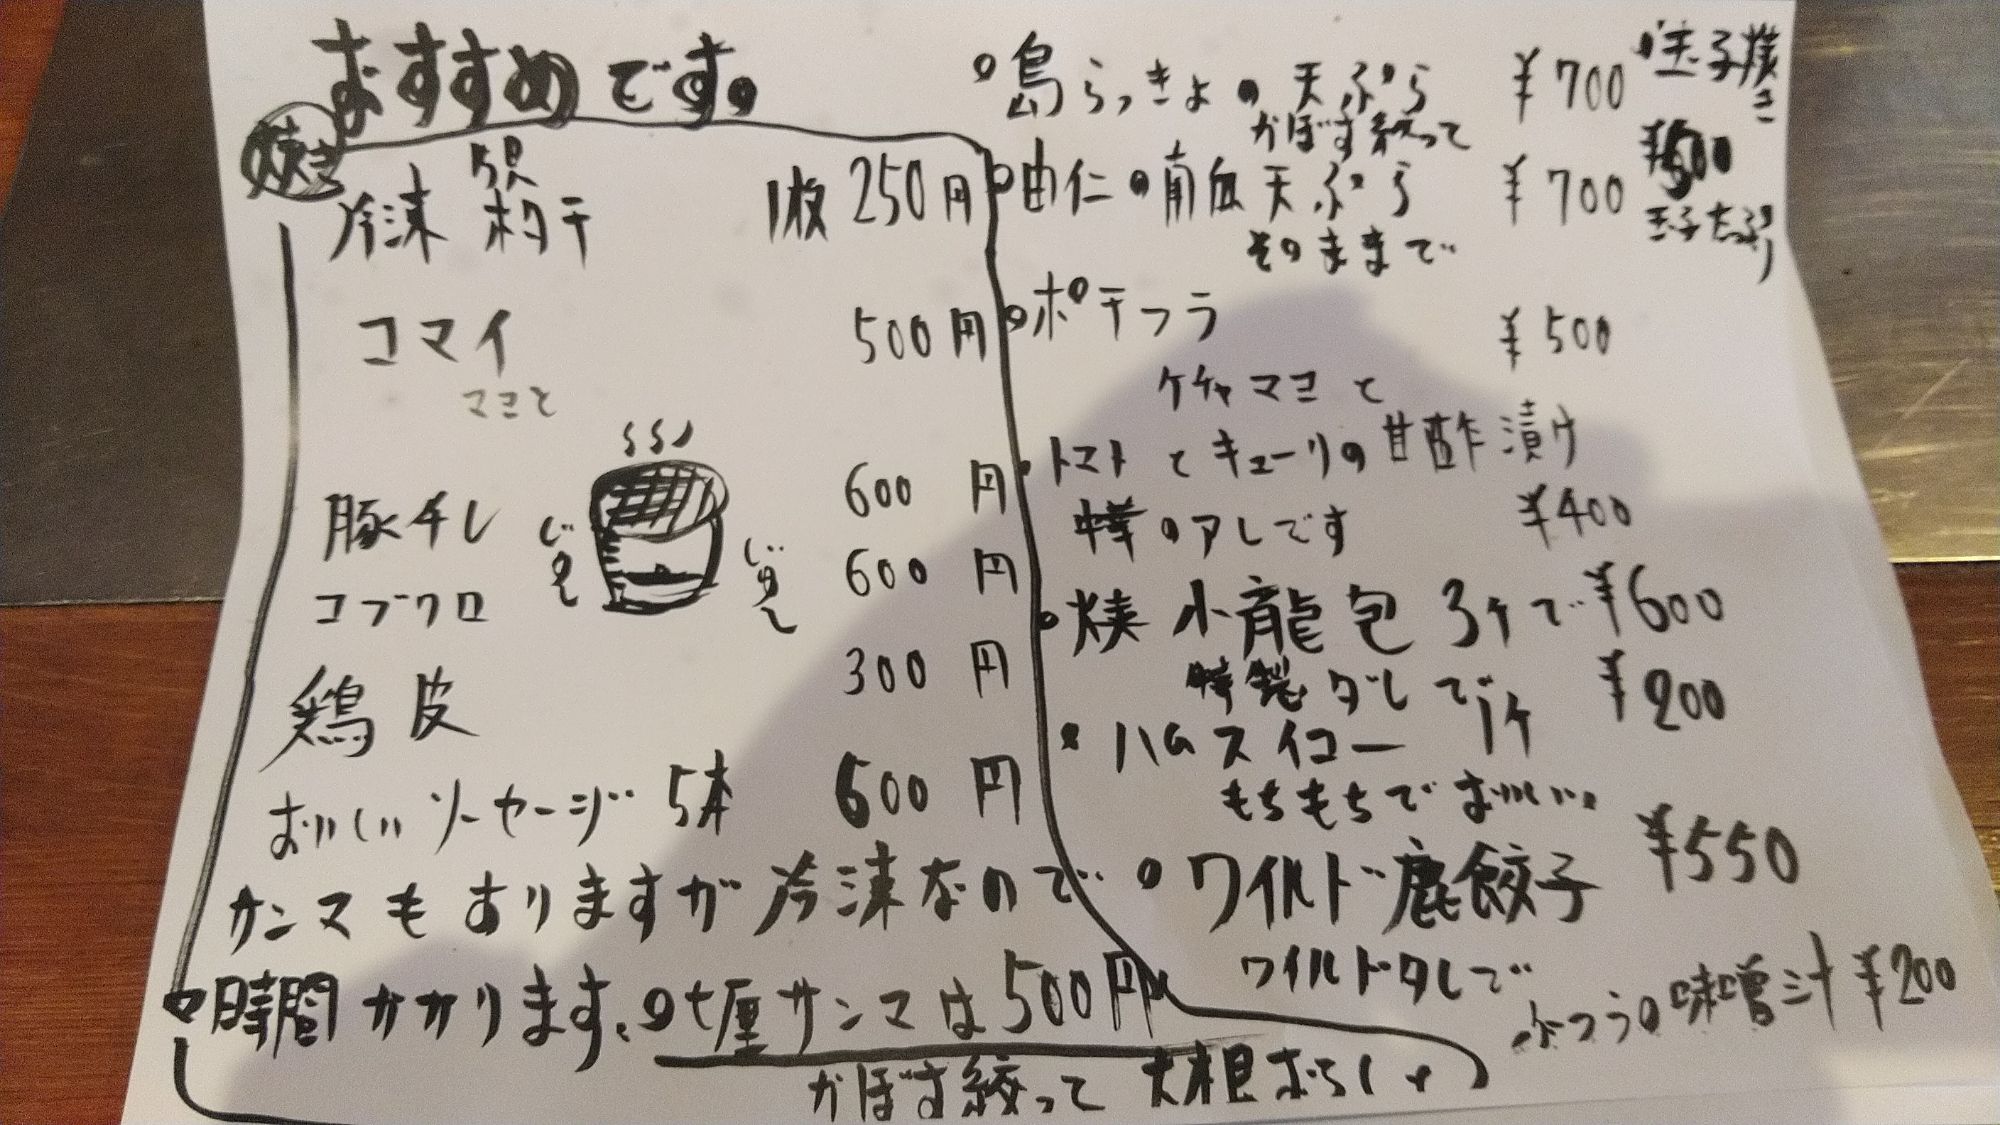 おすすめです。
焼き
冷凍 1枚 250円
コマイ 500円
マヨと
豚串し 600円
じゅ〜
じゅ〜
コブクロ 600円
鶏皮 300円
おいしいソーセージ 5本 600円
サンマもありますが冷凍なので
時間かかります。サンマは500円
かぼす絞って 大根おろし
島らっきょの天ぷら ¥700
かぼす絞って
由仁の南瓜天ぷら ¥700
そのままで
ポテフラ ¥500
ケチャマヨと
トマトとキューリの甘酢漬け
のアレです ¥400
焼小龍包 3ケで ¥600
特製ダレで
ハムスイコー 1ケ ¥200
もちもちでおいしい。
ワイルド鹿餃子 ¥550
ワイルドタレで
ふつうの味噌汁 ¥200
玉子焼き
¥500
玉子たっぷり